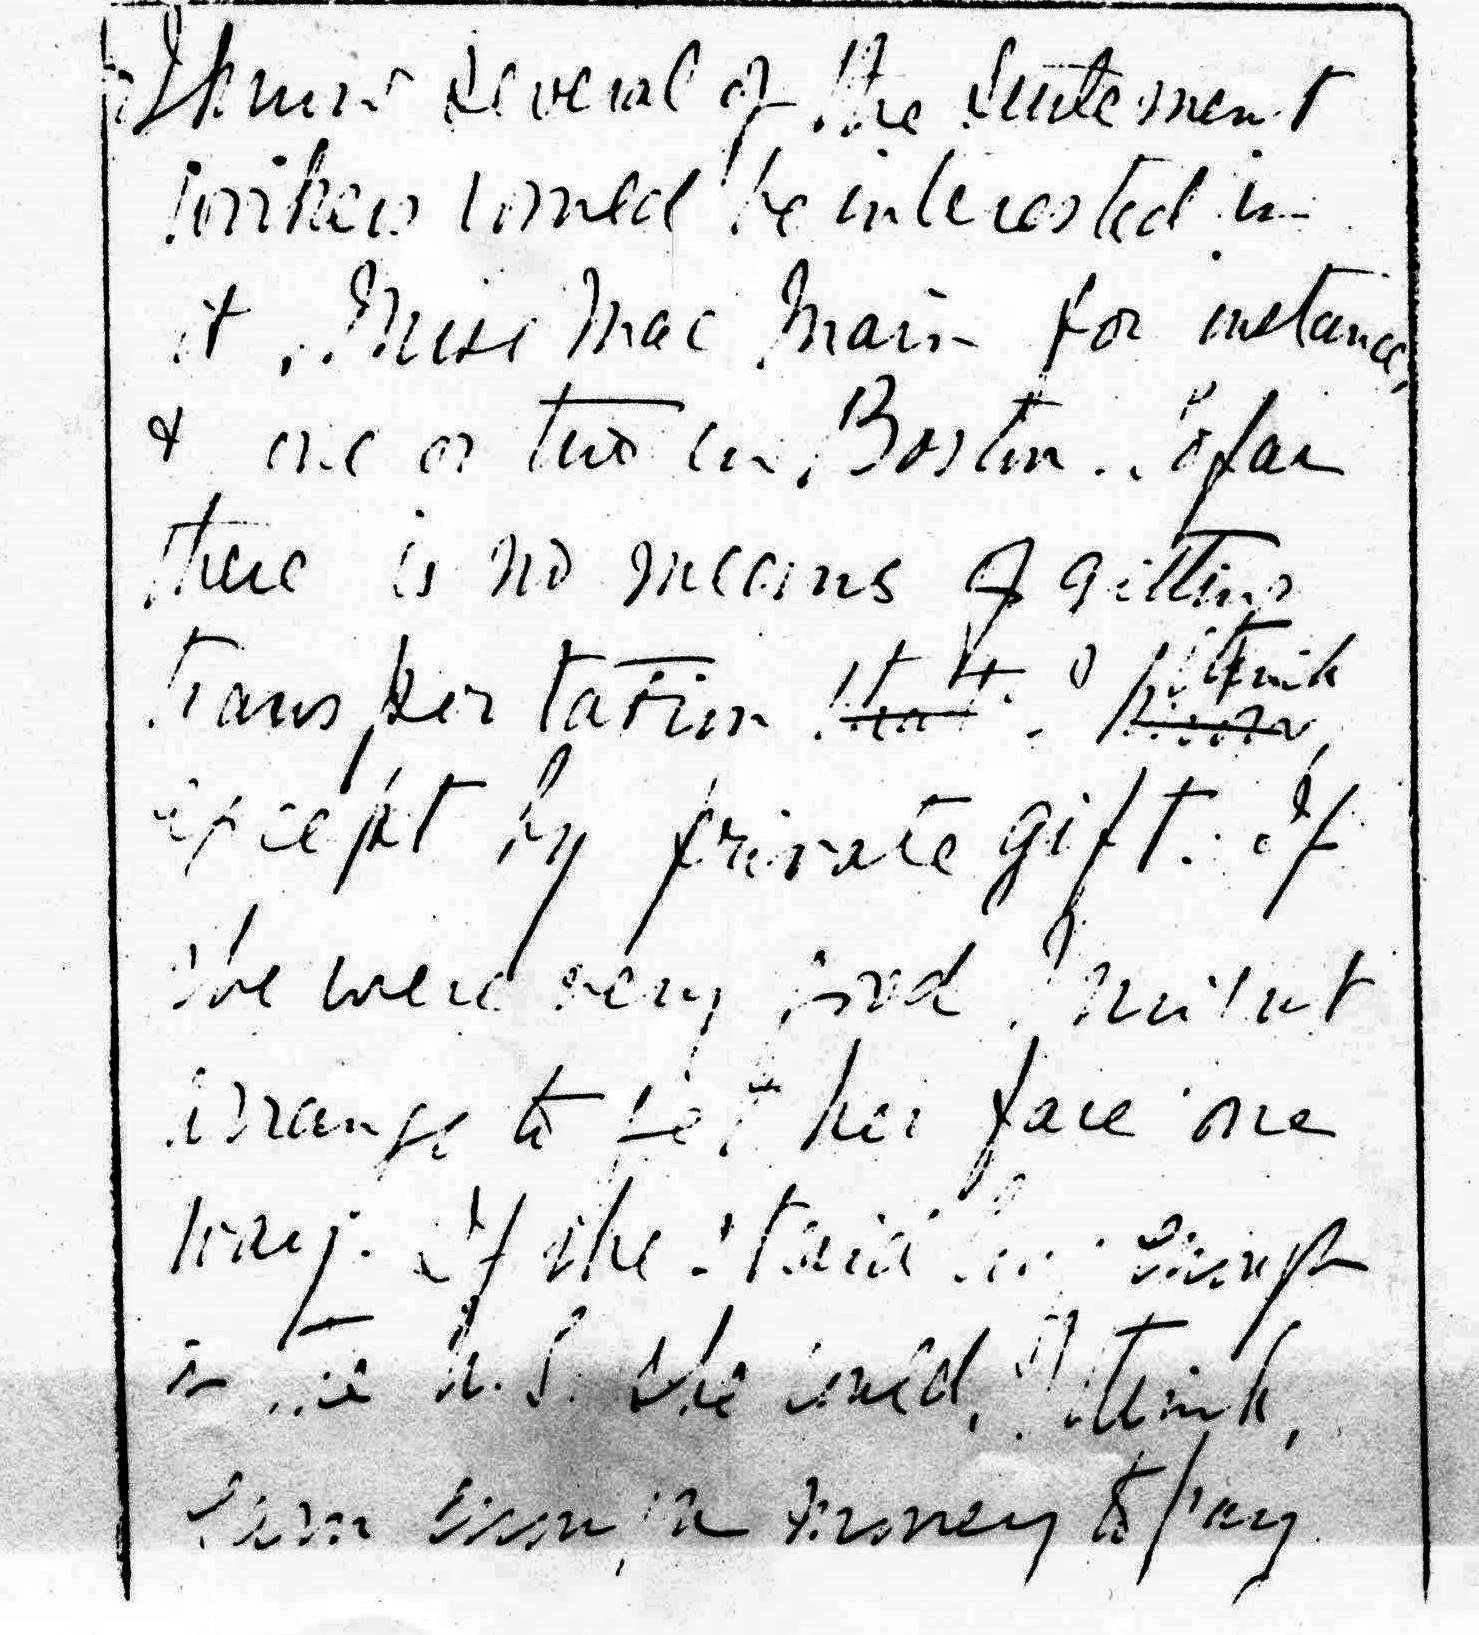 I know several of the Settlement
workers would be interested in
it, Miss Mac Main for instance,
& one or two in Boston. So far
there is no means of getting
transportation that I think know,
except by private gift. If
she were very good I might
arrange to get her fare one
way. If she staid long enough
in the U.S. she could, I think,
earn enough money to pay